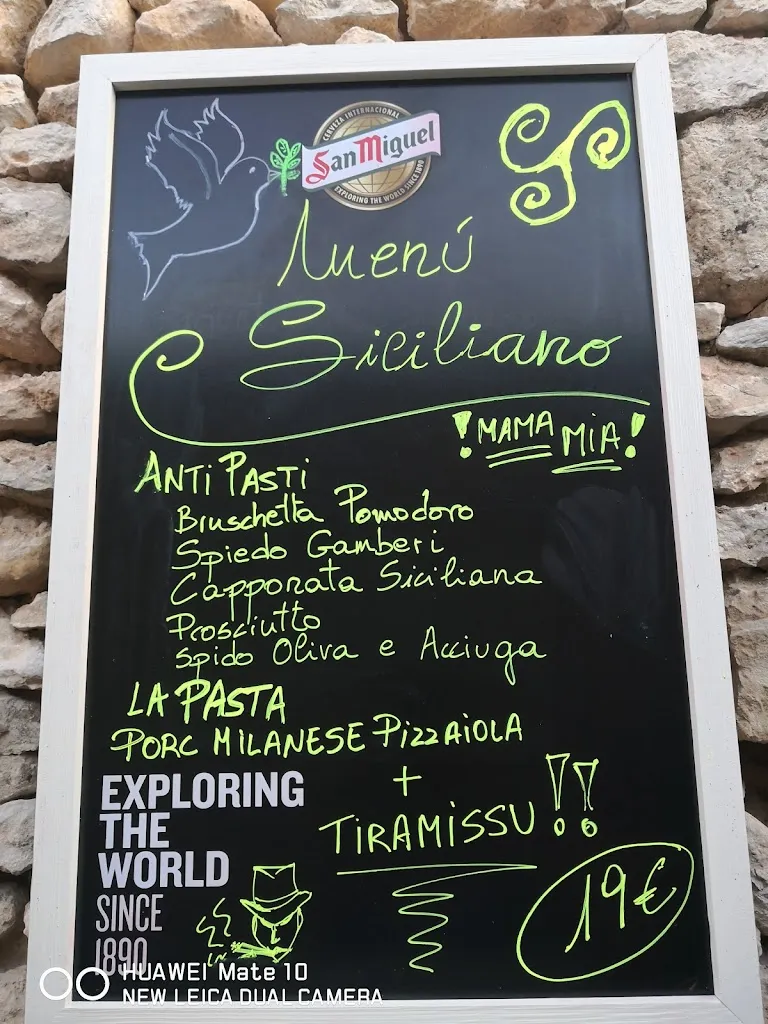 CERVEZA INTERNACIONAL
San Miguel
EXPLORING THE WORLD SINCE 1890
Menú
Siciliano
!MAMA MIA!
ANTi PASTi
Bruschetta Pomodoro
Spiedo Gamberi
Capponata Siciliana
Prosciutto
Spido Oliva e Acciuga
LA PASTA
PORC MILANESE PiZZAiOLA
+
TIRAMISSU!!
19€
EXPLORING
THE
WORLD
SINCE
1890
HUAWEI Mate 10
NEW LEICA DUAL CAMERA